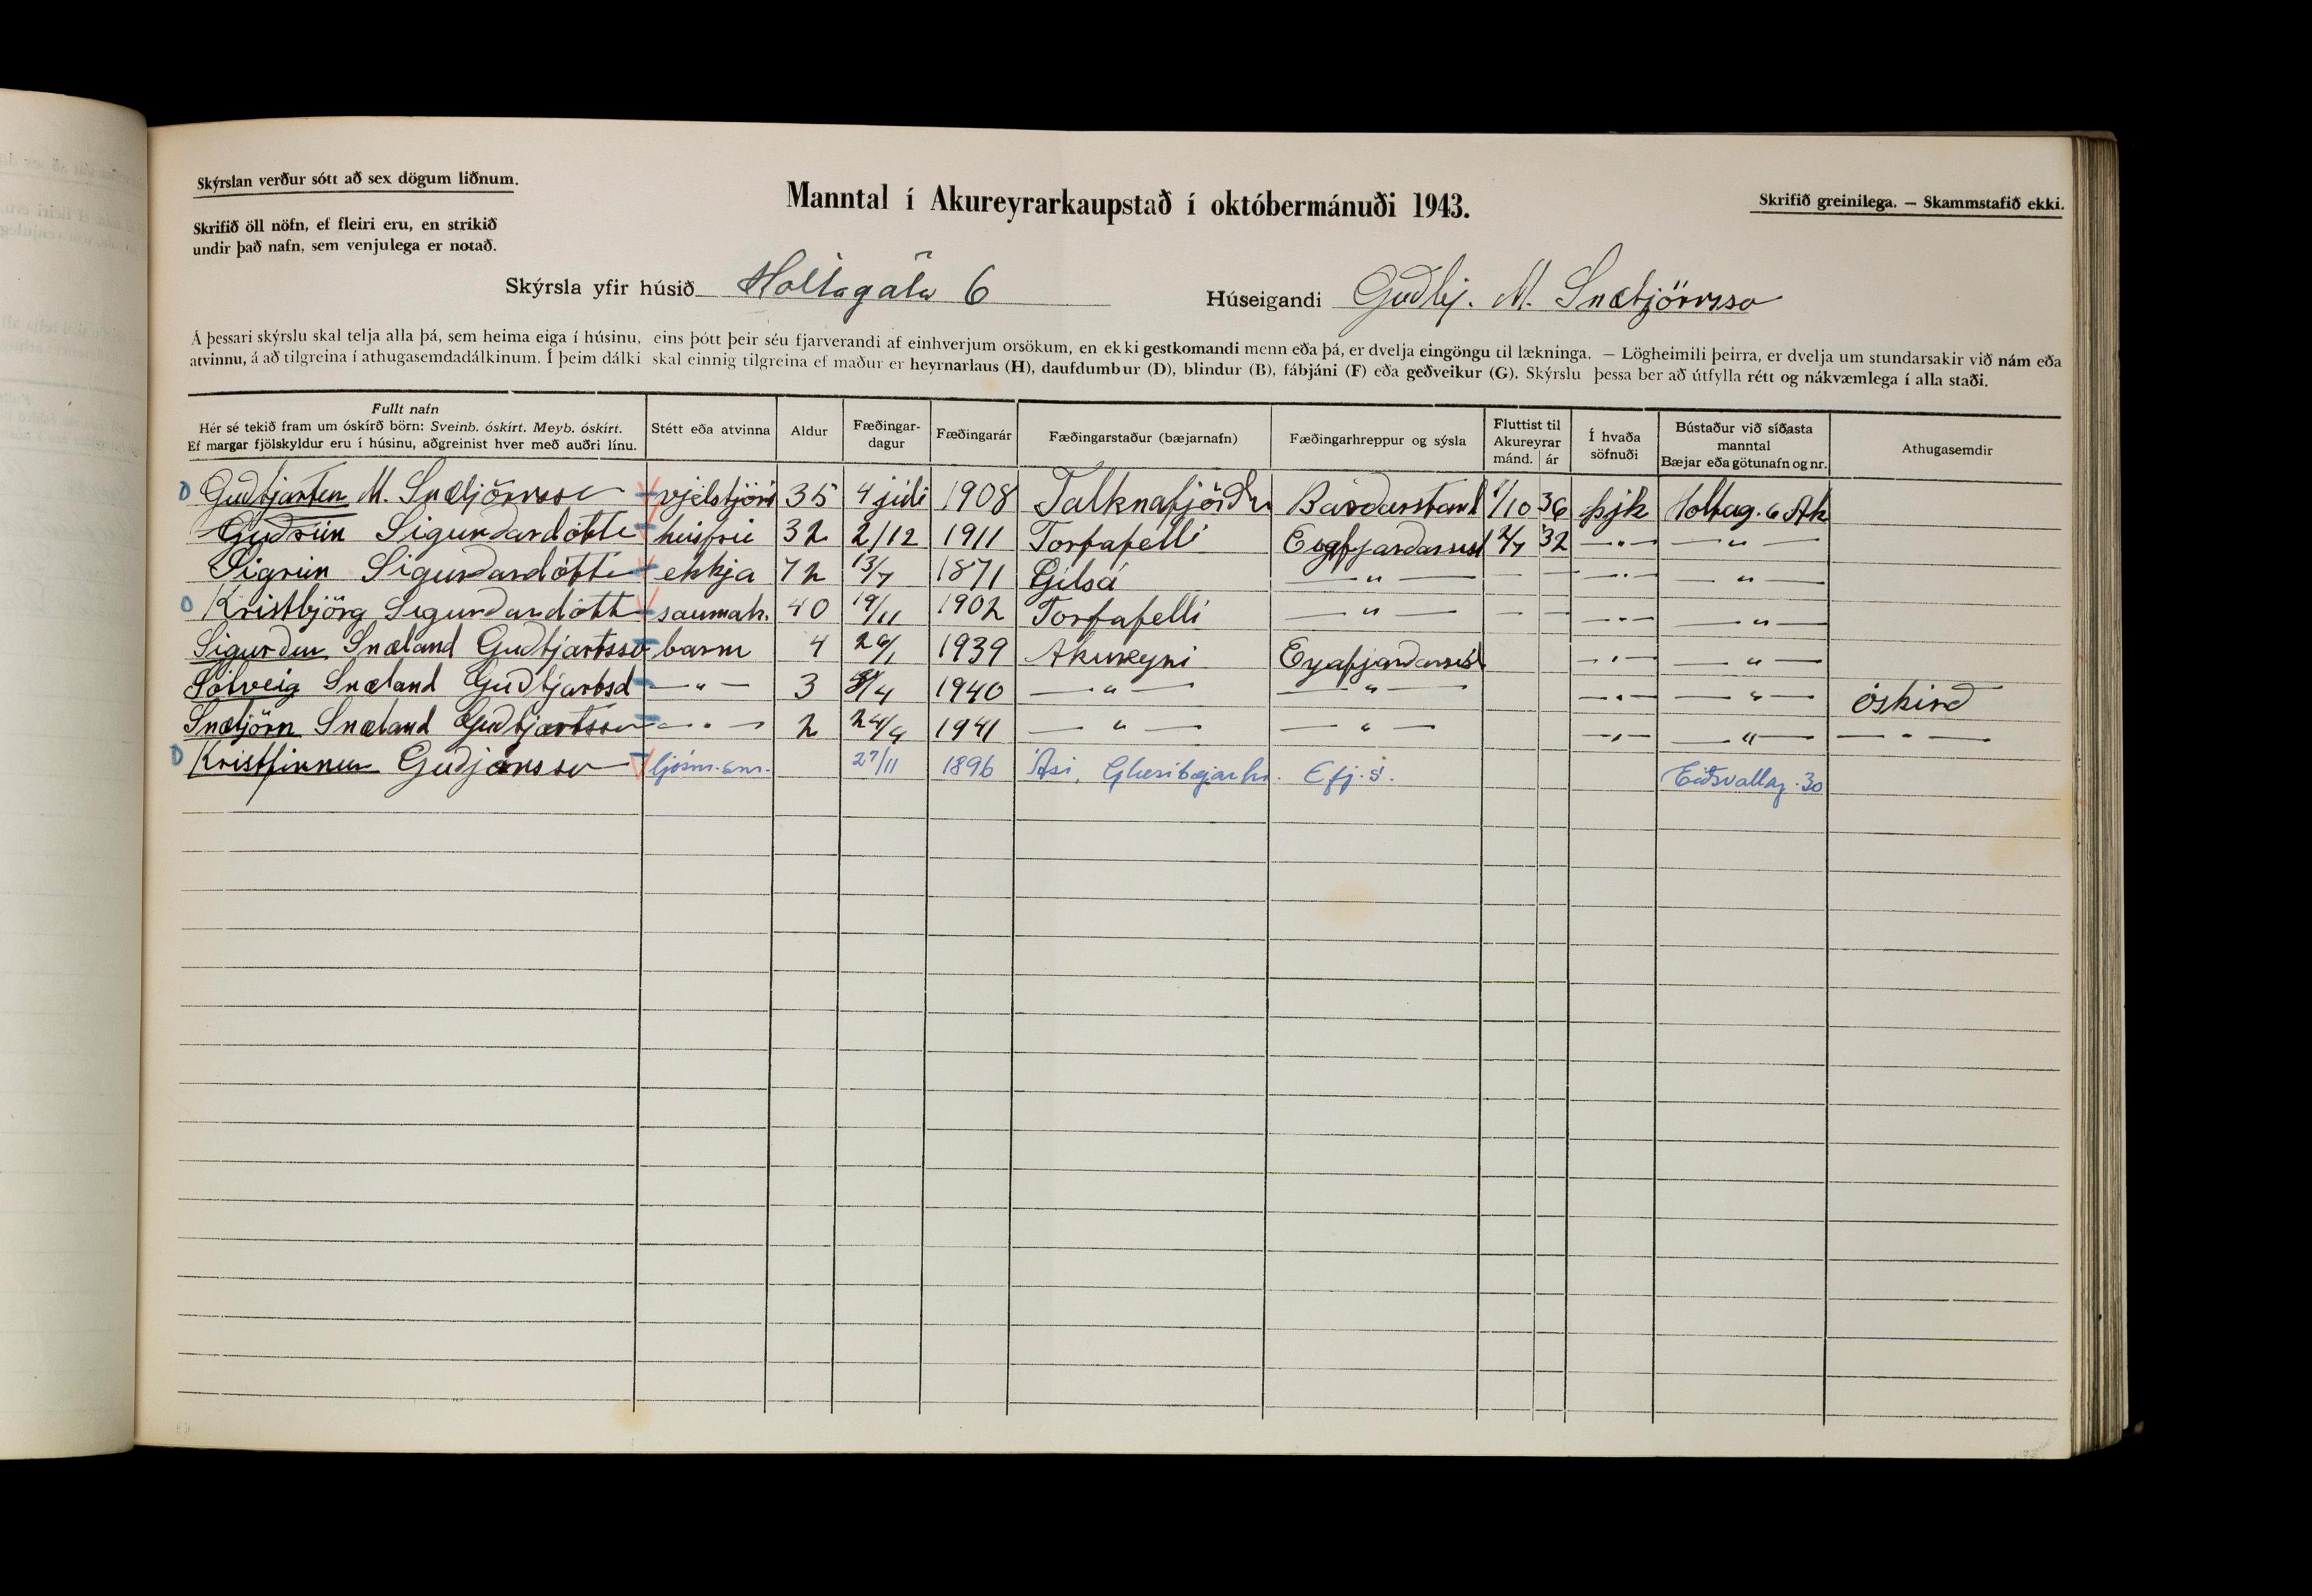 Skýrslan verður sótt að sex dögum liðnum.
Skrifið öll nöfn, ef fleiri eru, en strikið
undir það nafn, sem venjulega er notað.
Manntal í Akureyrarkaupstað í októbermánuði 1943.
Skrifið greinilega. — Skammstafið ekki.
Skýrsla yfir húsið Holtagata 6 Húseigandi Guðbj. M. Snæbjörnsso
Á þessari skýrslu skal telja alla þá, sem heima eiga í húsinu, eins þótt þeir séu fjarverandi af einhverjum orsökum, en ekki gestkomandi menn eða þá, er dvelja eingöngu til lækninga. — Lögheimili þeirra, er dvelja um stundarsakir við nám eða
atvinnu, á að tilgreina í athugasemdadálkinum. Í þeim dálki skal einnig tilgreina ef maður er heyrnarlaus (H), daufdumbur (D), blindur (B), fábjáni (F) eða geðveikur (G). Skýrslu þessa ber að útfylla rétt og nákvæmlega í alla staði.
Fullt nafn
Hér sé tekið fram um óskírð börn: Sveinb. óskírt. Meyb. óskírt.
Ef margar fjölskyldur eru í húsinu, aðgreinist hver með auðri línu.
Stétt eða atvinna
Aldur
Fæðingar-
dagur
Fæðingarár
Fæðingarstaður (bæjarnafn)
Fæðingarhreppur og sýsla
Fluttist til
Akureyrar
mánd. ár
Í hvaða
söfnuði
Bústaður við síðasta
manntal
Bæjar eða götunafn og nr.
Athugasemdir
Guðbjarten M. Snæbjörnsso vjelstjóri 35 4 júli 1908 Talknafjörður Barðarstand 1/10 36 þjk Holtag. 6 Ak
Guðrún Sigurðardótti húsfrú 32 2/12 1911 Torfafelli Eyjafjarðarsysl 2/7 32 — " — — " —
Sigrún Sigurðardótti ekkja 72 13/7 1871 Gilsá — " — — — — " — — " —
Kristbjörg Sigurðardótt saumak. 40 19/11 1902 Torfafelli — " — — — — " — — " —
Sigurður Snæland Guðbjartsso barn 4 29/1 1939 Akureyri Eyafjarðarsísl — " — — " —
Sólveig Snæland Guðbjartsd — " — 3 /4 1940 — " — — " — — " — — " — óskírð
Snæbjörn Snæland Guðbjartsso — " — 2 24/9 1941 — " — — " — — " — — " — — " —
Kristfinnur Guðjónsso ljósm.sm. 27/11 1896 Ási, Glæsibæjarhr. Efj.s. Eiðsvallag. 30